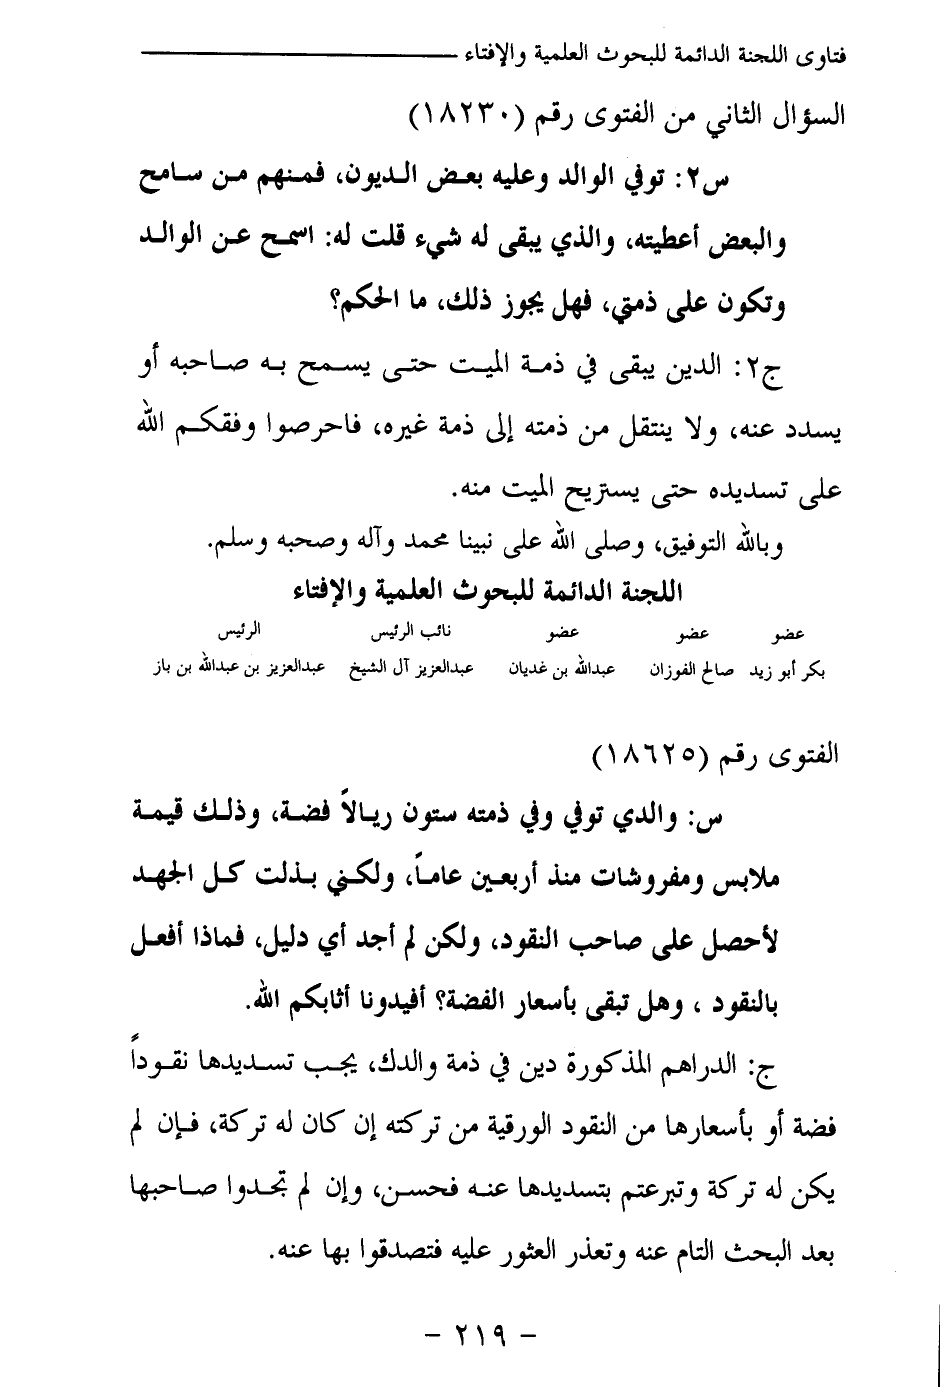 فتاوى اللجنة الدائمة للبحوث العلمية والإفتاء
السؤال الثاني من الفتوى رقم (١٨٢٣٠)
س٢: توفي الوالد وعليه بعض الديون، فمنهم من سامح
والبعض أعطيته، والذي يبقى له شيء قلت له: اسمح عن الوالد
وتكون على ذمتي، فهل يجوز ذلك، ما الحكم؟
ج٢: الدين يبقى في ذمة الميت حتى يسمح به صاحبه أو
يسدد عنه، ولا ينتقل من ذمته إلى ذمة غيره، فاحرصوا وفقكم الله
على تسديده حتى يستريح الميت منه.
وبالله التوفيق، وصلى الله على نبينا محمد وآله وصحبه وسلم.
اللجنة الدائمة للبحوث العلمية والإفتاء
عضو عضو عضو نائب الرئيس الرئيس
بكر أبو زيد صالح الفوزان عبدالله بن غديان عبدالعزيز آل الشيخ عبدالعزيز بن عبدالله بن باز
الفتوى رقم (١٨٦٢٥)
س: والدي توفي وفي ذمته ستون ريالاً فضة، وذلك قيمة
ملابس ومفروشات منذ أربعين عاماً، ولكني بذلت كل الجهد
لأحصل على صاحب النقود، ولكن لم أجد أي دليل، فماذا أفعل
بالنقود ، وهل تبقى بأسعار الفضة؟ أفيدونا أثابكم الله.
ج: الدراهم المذكورة دين في ذمة والدك، يجب تسديدها نقوداً
فضة أو بأسعارها من النقود الورقية من تركته إن كان له تركة، فإن لم
يكن له تركة وتبرعتم بتسديدها عنه فحسن، وإن لم تجدوا صاحبها
بعد البحث التام عنه وتعذر العثور عليه فتصدقوا بها عنه.
- ٢١٩ -